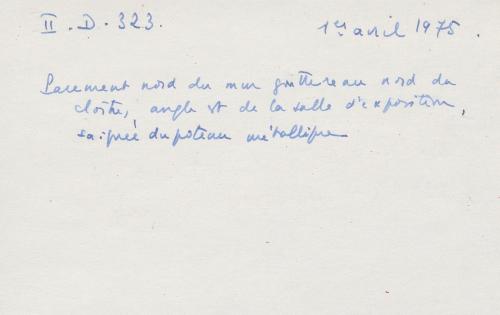 II . D . 323.
1er avril 1975.
Parement nord du mur gouttereau nord du
cloître, angle st de la salle d'exposition,
saignée du poteau métallique